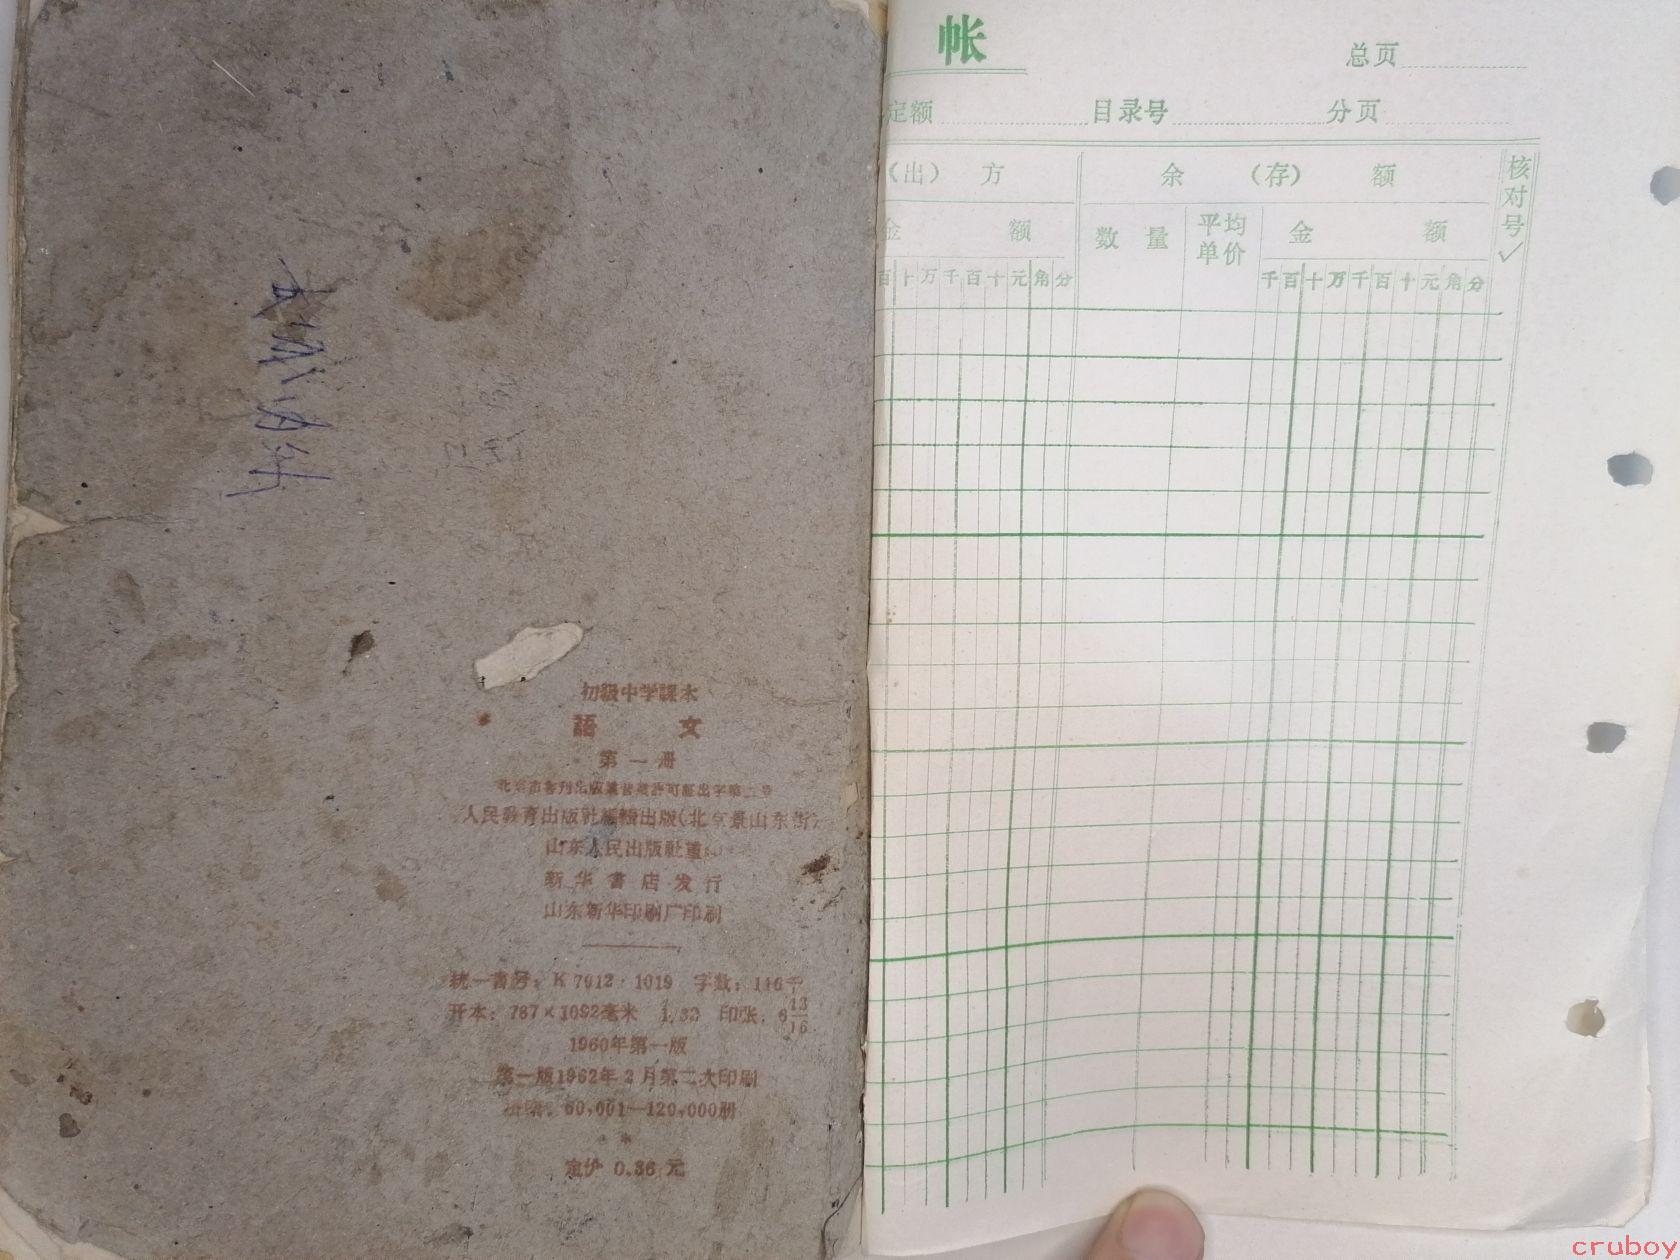 初級中学課本
語 文
第一册
人民教育出版社編輯出版(北京景山东街)
山东人民出版社重
新华書店发行
山东新华印刷厂印刷
統一書号: K 7012·1019 字数: 116千
开本: 787×1092毫米 1/32 印张: 6 13/16
1960年第一版
第一版1962年2月第二次印刷
60,001—120,000册
*
定价 0.36 元
帐
总页
定额 目录号 分页
(出) 方 余 (存) 额 核对号✓
金 额 数 量 平均单价 金 额
百十万千百十元角分 千百十万千百十元角分
cruboy